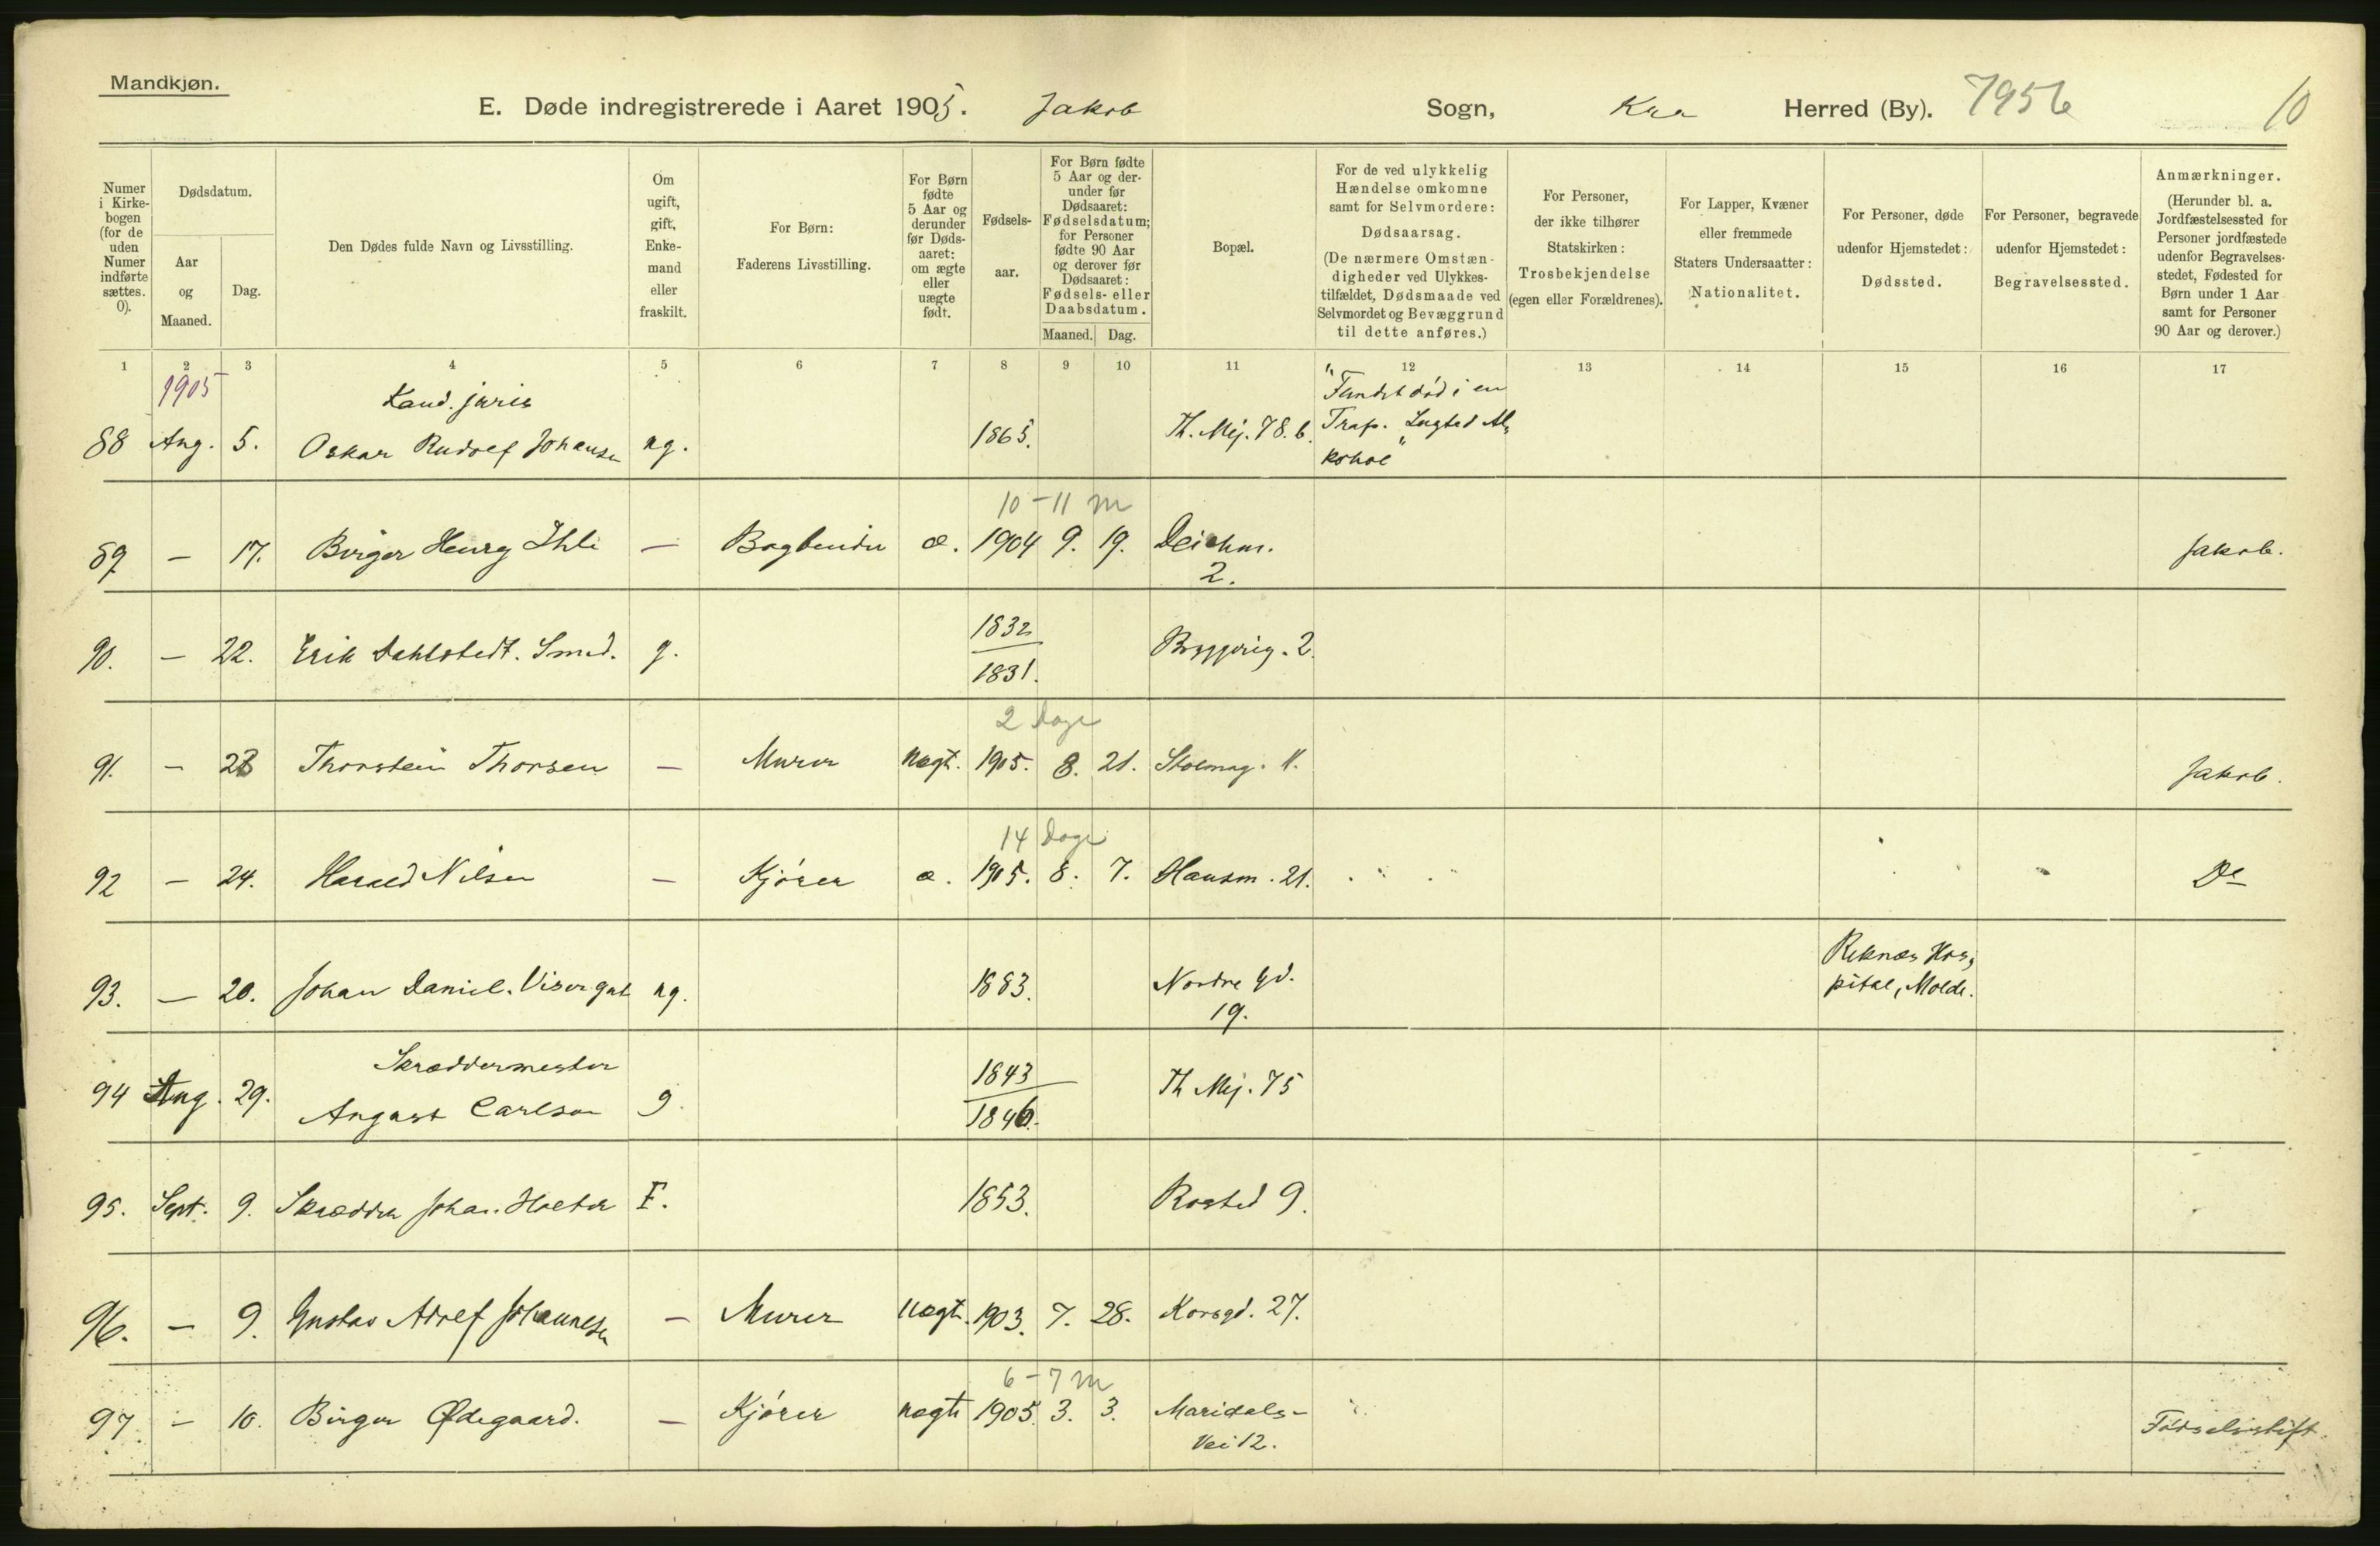 Mandkjøn.
E. Døde indregistrerede i Aaret 1905. Jakob Sogn, Kra Herred (By). 7956 10
Numer i Kirke-bogen (for de uden Numer indførte sættes. 0).
Dødsdatum.
Aar og Maaned.
Dag.
Den Dødes fulde Navn og Livsstilling.
Om ugift, gift, Enke-mand eller fraskilt.
For Børn: Faderens Livsstilling.
For Børn fødte 5 Aar og derunder før Døds-aaret: om ægte eller uægte født.
Fødsels-aar.
For Børn fødte 5 Aar og der-under før Dødsaaret: Fødselsdatum; for Personer fødte 90 Aar og derover før Dødsaaret: Fødsels- eller Daabsdatum.
Maaned. Dag.
Bopæl.
For de ved ulykkelig Hændelse omkomne samt for Selvmordere: Dødsaarsag. (De nærmere Omstæn-digheder ved Ulykkes-tilfældet, Dødsmaade ved Selvmordet og Bevæggrund til dette anføres.)
For Personer, der ikke tilhører Statskirken: Trosbekjendelse (egen eller Forældrenes).
For Lapper, Kvæner eller fremmede Staters Undersaatter: Nationalitet.
For Personer, døde udenfor Hjemstedet: Dødssted.
For Personer, begravede udenfor Hjemstedet: Begravelsessted.
Anmærkninger. (Herunder bl. a. Jordfæstelsessted for Personer jordfæstede udenfor Begravelses-stedet, Fødested for Børn under 1 Aar samt for Personer 90 Aar og derover.)
1 2 3 4 5 6 7 8 9 10 11 12 13 14 15 16 17
1905
Kand. juris "Fundet død i en
88 Aug. 5. Oskar Rudolf Johansen ug. 1865. Th. Mej. 78.b. Trap. Lugted Al-
kohol"
10-11 m
89 — 17. Birger Henry Ihle — Bogbinder æ. 1904 9. 19. Deichm. Jakob.
2.
1832
90. — 22. Erik Dahlstedt. Smed. g. Bryggerig. 2.
1831.
2 Dage
91. — 23 Thorstein Thorsen — Murer uægt. 1905. 8. 21. Stolmag. 11. Jakob.
14 Dage
92 — 24. Harald Nilsen — Kjører æ. 1905. 8. 7. Hausm. 21. Do
Reknæs Hos-
93. — 20. Johan Daniel. Visergut ug. 1883. Nordre Gd. pital, Molde.
19.
Skræddermester 1843
94 Aug. 29. August Carlson g. 1846. Th Mej. 75
95. Sept. 9. Skrædder Johan Holter F. 1853. Rosted 9.
96. — 9. Gustav Adolf Johannesen — Murer uægt. 1903. 7. 28. Korsgd. 27.
6-7 m
97. — 10. Birger Ødegaard. — Kjører uægte 1905. 3. 3. Maridals- Fødselsstift.
Vei 12.